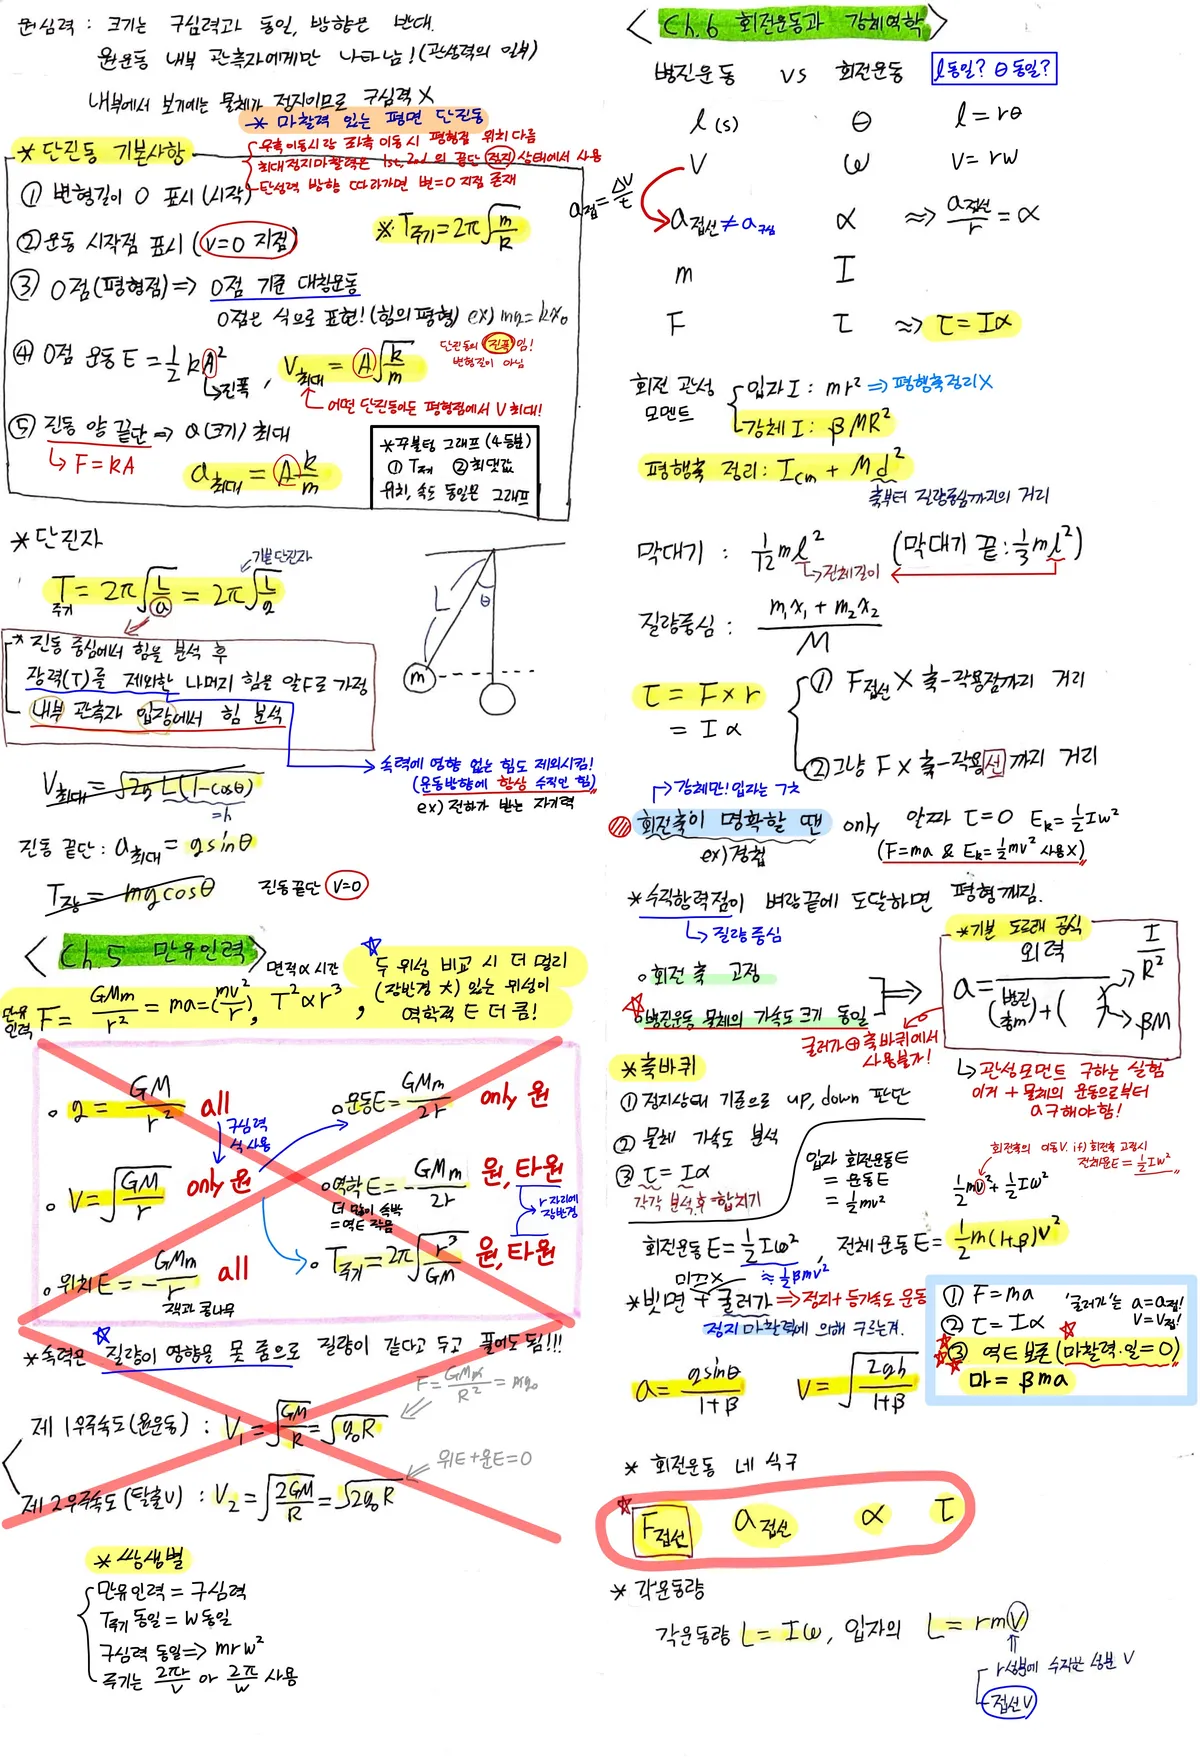 원심력 : 크기는 구심력과 동일, 방향은 반대.
원운동 내부 관측자에게만 나타남! (관성력의 일부)
내부에서 보기에는 물체가 정지이므로 구심력 X
* 마찰력 있는 평면 단진동
우측이동시랑 좌측 이동시 평형점 위치 다름
최대정지마찰력은 1st, 2nd 의 끝단 정지 상태에서 사용
탄성력 방향 따라가면 변=0 지점 존재
* 단진동 기본사항
① 변형길이 0 표시 (시작)
※ T주기 = 2π√(m/k)
② 운동 시작점 표시 (v=0 지점)
③ 0점(평형점) => 0점 기준 대칭운동
0점은 식으로 표현! (힘의 평형) ex) mg = kx₀
④ 0점 운동 E = ½kA², V최대 = A√(k/m)
→ 진폭
단진동의 진폭임!
변형길이 아님
어떤 단진동이든 평형점에서 V 최대!
⑤ 진동 양 끝단 => a(크기) 최대
→ F = kA
a최대 = A k/m
* 꾸불텅 그래프 (4등분)
① T주기 ② 최댓값
위치, 속도 동일은 그래프
* 단진자
기본단진자
T주기 = 2π√(L/a) = 2π√(L/g)
L θ
m
* 진동 중심에서 힘을 분석 후
장력(T)를 제외한 나머지 힘을 알F로 가정
내부 관측자 입장에서 힘 분석
→ 속력에 영향 없는 힘도 제외시킴!
(운동방향에 항상 수직인 힘)
ex) 전하가 받는 자기력
V최대 = √(2gL(1-cosθ))
=h
진동 끝단 : a최대 = gsinθ
T장 = mgcosθ
진동끝단 v=0
< Ch.5 만유인력 >
면적 ∝ 시간
만유인력 F = GMm/r² = ma = (mv²/r), T² ∝ r³,
☆ 두 위성 비교 시 더 멀리
(장반경 大) 있는 위성이
역학적 E 더 큼!
∘ g = GM/r² all
구심력
식 사용
∘ 운동E = GMm/2r only 원
∘ V = √(GM/r) only 원
∘ 역학E = -GMm/2r 원, 타원
더 많이 속박
= 역E 작음
r자리에
장반경
∘ 위치E = -GMm/r all
잭과 콩나무
∘ T주기 = 2π√(r³/GM) 원, 타원
* 속력은 질량이 영향을 못 줌으로 질량이 같다고 두고 풀어도 됨!!!
제 1우주속도 (원운동) : V₁ = √(GM/R) = √(g₀R)
F = GMm/R² = mg₀
제 2우주속도 (탈출V) : V₂ = √(2GM/R) = √(2g₀R)
위E + 운E = 0
* 쌍성별
만유인력 = 구심력
T주기 동일 = w 동일
구심력 동일 => mrw²
주기는 2πr/v or 2π/w 사용
< Ch.6 회전운동과 강체역학 >
병진운동 vs 회전운동
l동일? θ동일?
l (s) θ l = rθ
V ω v = rw
a접 = Δv/t
a접선 ≠ a구심 α ≈> a접선/r = α
m I
F τ ≈> τ = Iα
회전 관성 모멘트
입자 I : mr² => 평행축정리 X
강체 I : βMR²
평행축 정리 : Icm + Md²
축부터 질량중심까지의 거리
막대기 : 1/12 ml² (막대기 끝 : ⅓ml²)
→ 전체길이
질량중심 : (m₁x₁ + m₂x₂)/M
τ = F × r
= Iα
① F접선 X 축-작용점까지 거리
② 그냥 F X 축-작용선까지 거리
→ 강체만! 입자는 7초
회전축이 명확할 땐 only 알짜 τ=0 Ek = ½Iw²
ex) 경첩
(F=ma & Ek=½mv² 사용X)
* 수직항력점이 벼랑끝에 도달하면 평형깨짐.
→ 질량중심
∘ 회전 축 고정
∘ 병진운동 물체의 가속도 크기 동일
* 기본 도르래 공식
a = 외력/((병진총m) + ( ))
I/R²
βM
굴러가 ⊕ 축바퀴에서
사용불가!
→ 관성모멘트 구하는 실험
이거 + 물체의 운동으로부터
a구해야함!
* 축바퀴
① 정지상태 기준으로 up, down 판단
② 물체 가속도 분석
③ τ = Iα
각각 분석 후 합치기
입자 회전운동E
= 운동E
= ½mv²
회전축의 이동V. if) 회전축 고정시
전체운E = ½Iw²
½mv² + ½Iω²
회전운동E = ½Iω², 전체 운동E = ½m(1+β)V²
≈ ½βmv²
미끄X
* 빗면 + 굴러가 => 정지 + 등가속도 운동
정지 마찰력에 의해 구르는겨.
a = gsinθ/(1+β) v = √(2gh/(1+β))
① F = ma
② τ = Iα
③ 역E 보존 (마찰력.일 = 0)
마 = βma
'굴러가'는 a = a접!
V = V접!
* 회전운동 네 식구
F접선 a접선 α τ
* 각운동량
각운동량 L = Iω, 입자의 L = rmv
r성분에 수직한 성분 V
접선V